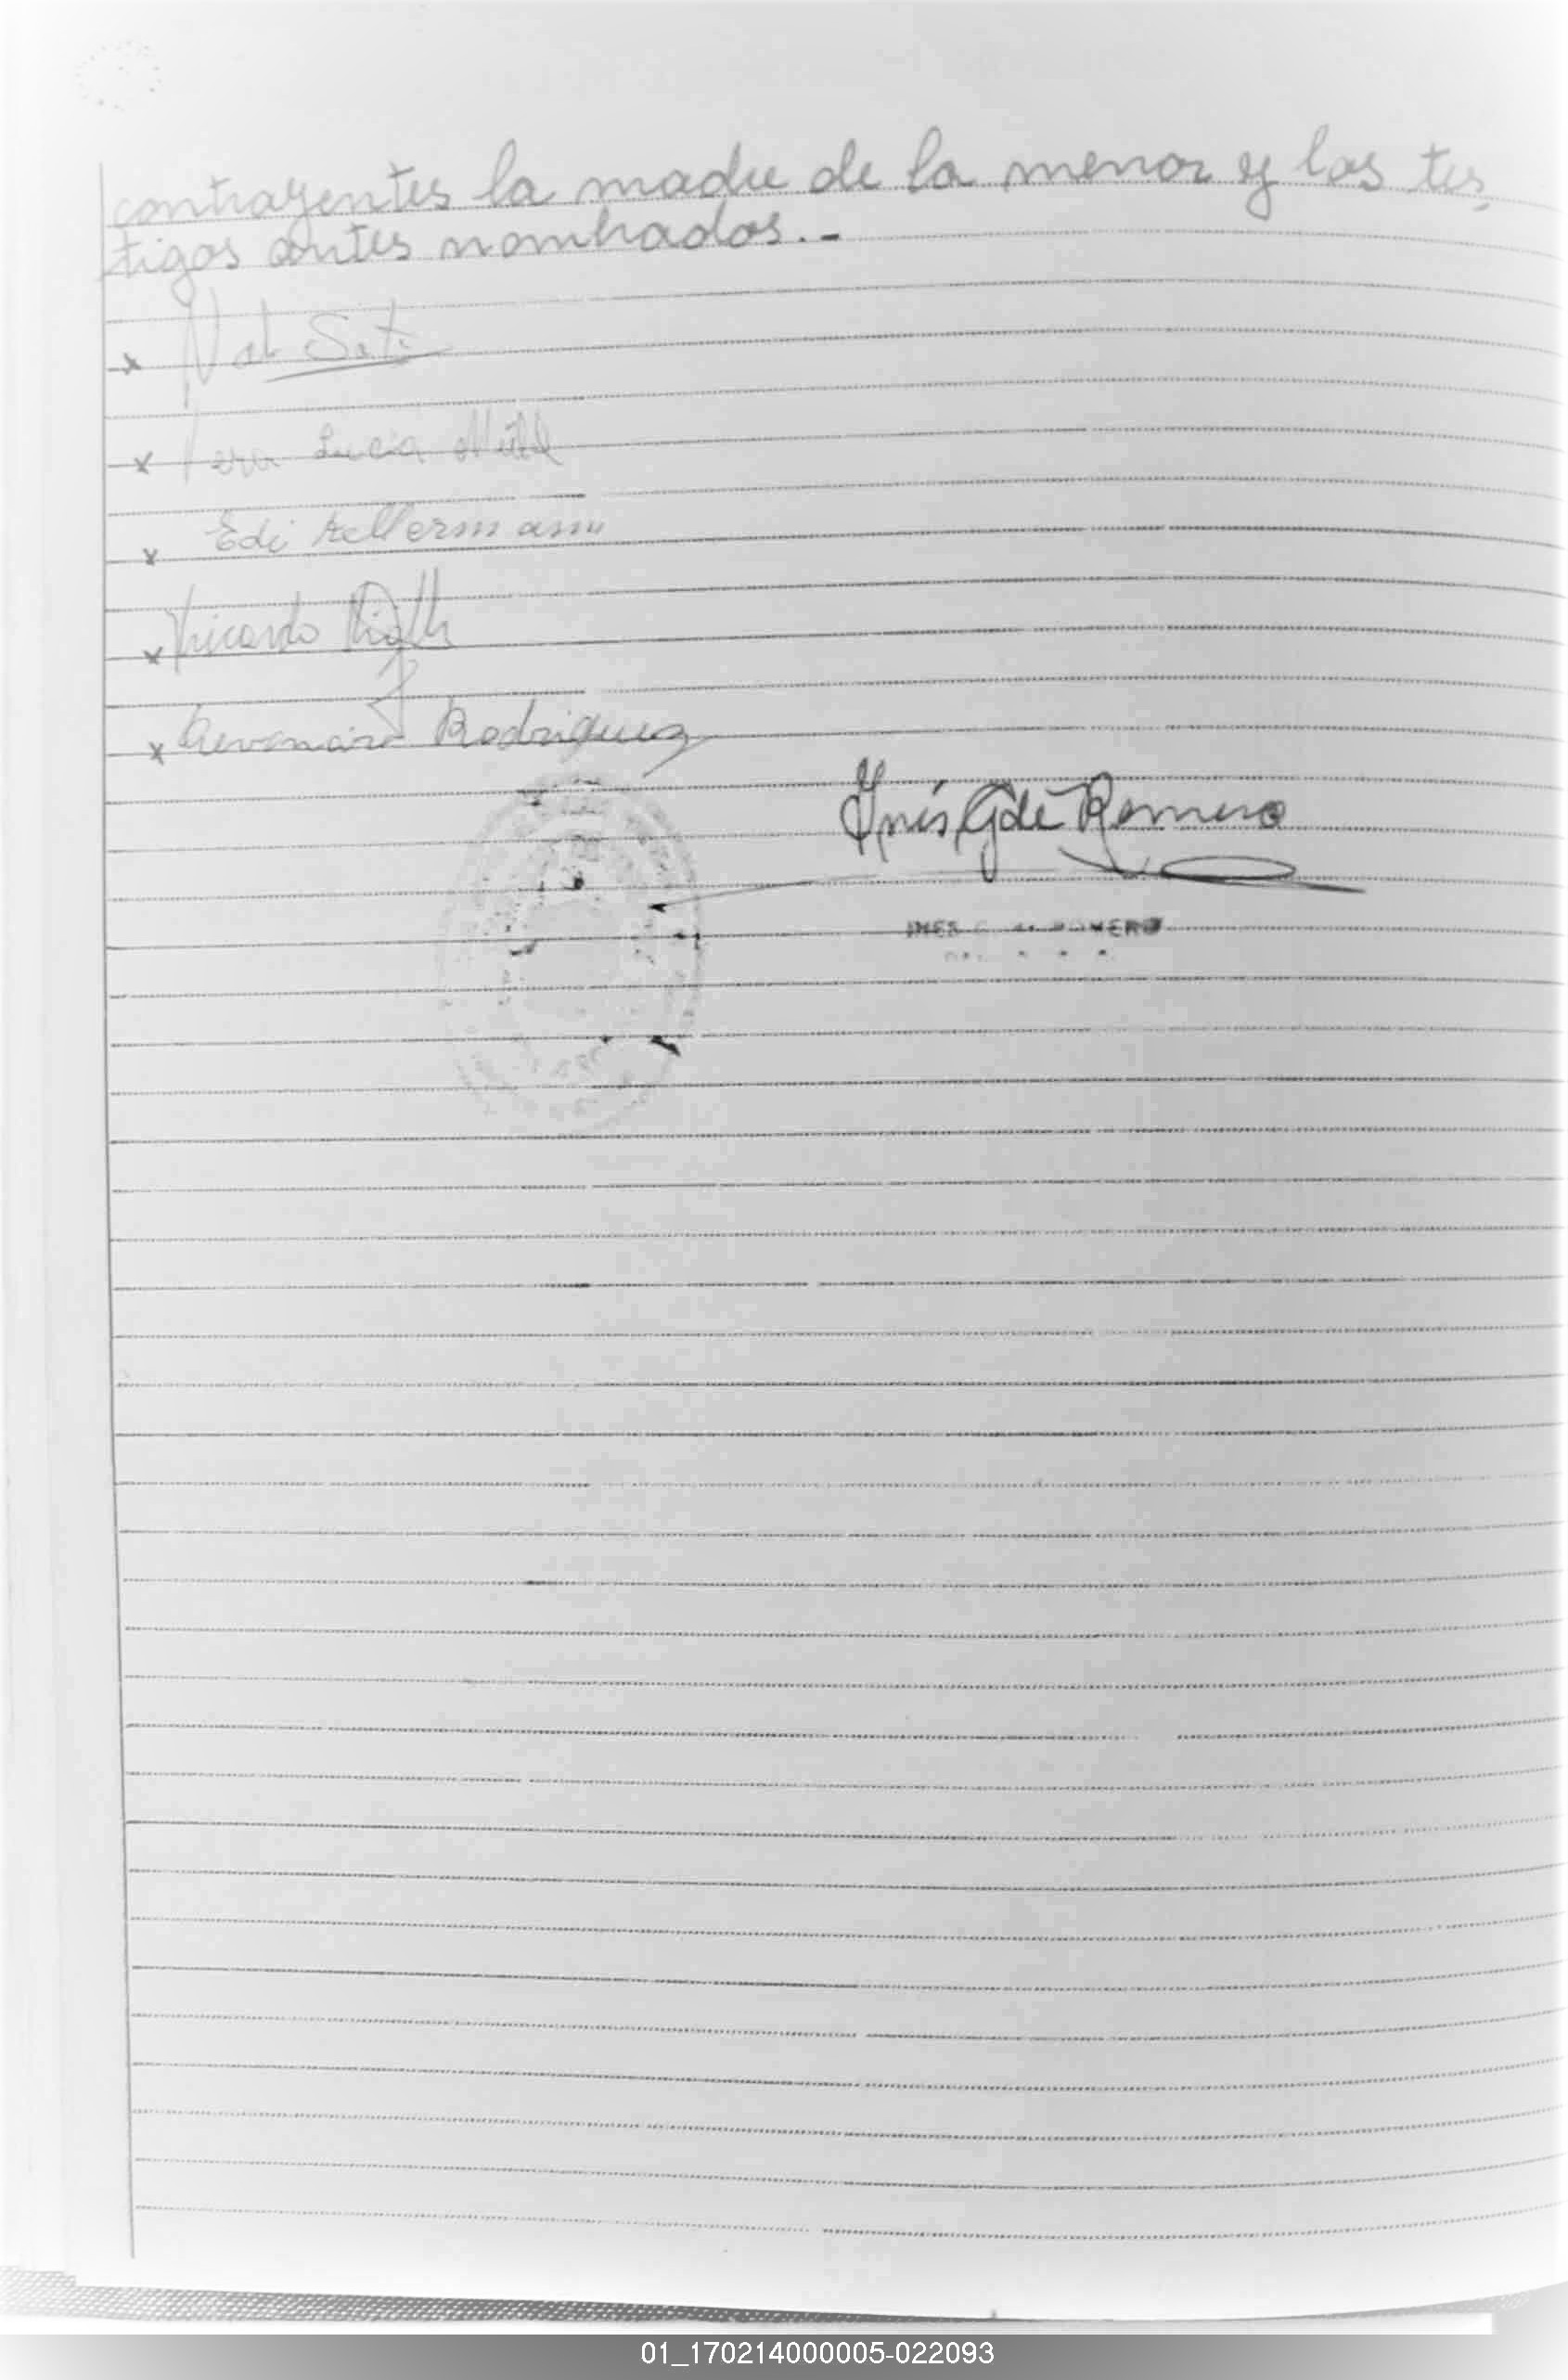 contrayentes la madre de la menor y los tes
tigos antes nombrados.-
x
x Vera Lucia
x Edi Kellermann
x Ricardo
x Rodriguez
Inés G de Romero
INES G. de ROMERO
01_170214000005-022093